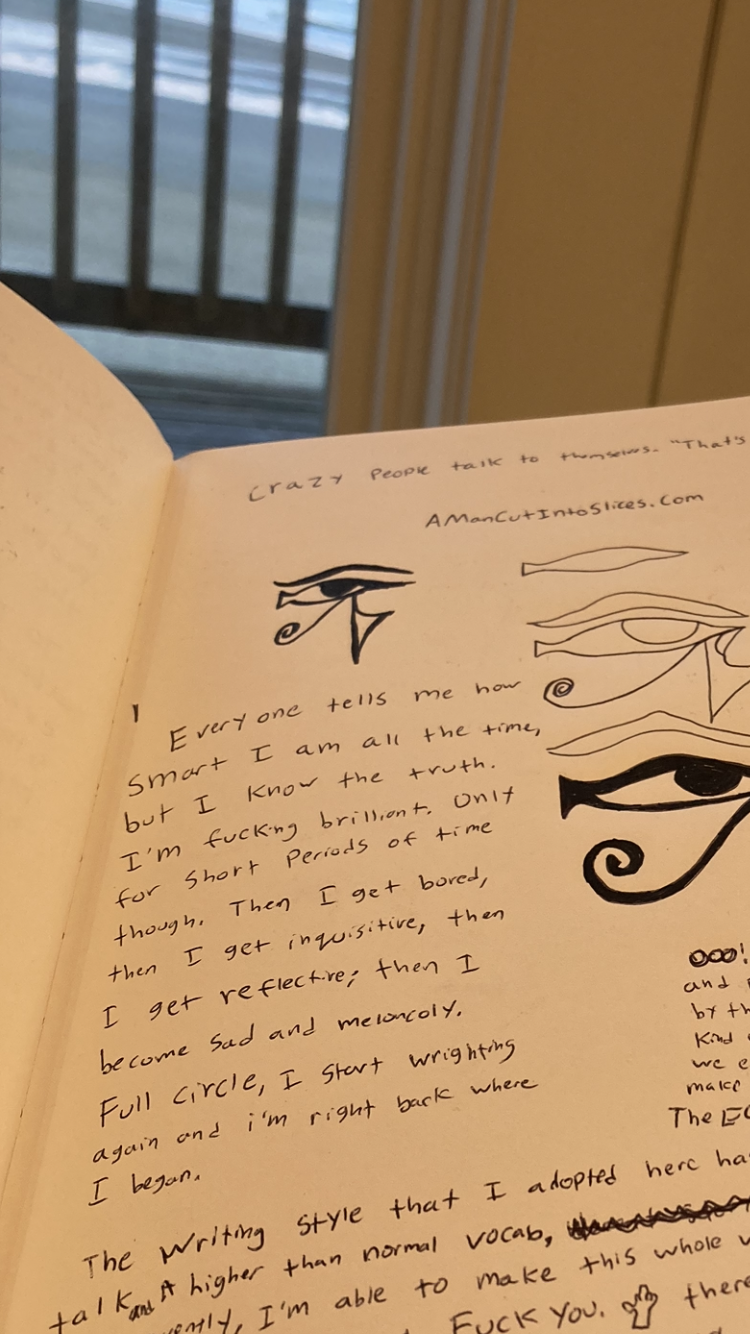 Crazy People talk to themselves. "That's
AManCutIntoSlices.com
Everyone tells me how
smart I am all the time,
but I know the truth.
I'm fucking brilliant. Only
for short Periods of time
though. Then I get bored,
then I get inquisitive, then
I get reflective; then I
become sad and meloncoly.
Full circle, I start wrighting
again and i'm right back where
I began.
OOO!
and
by th
Kind
we e
make
The EG
The writing style that I adopted here ha
talk and A higher than normal vocab,
ently, I'm able to make this whole w
Fuck You. there